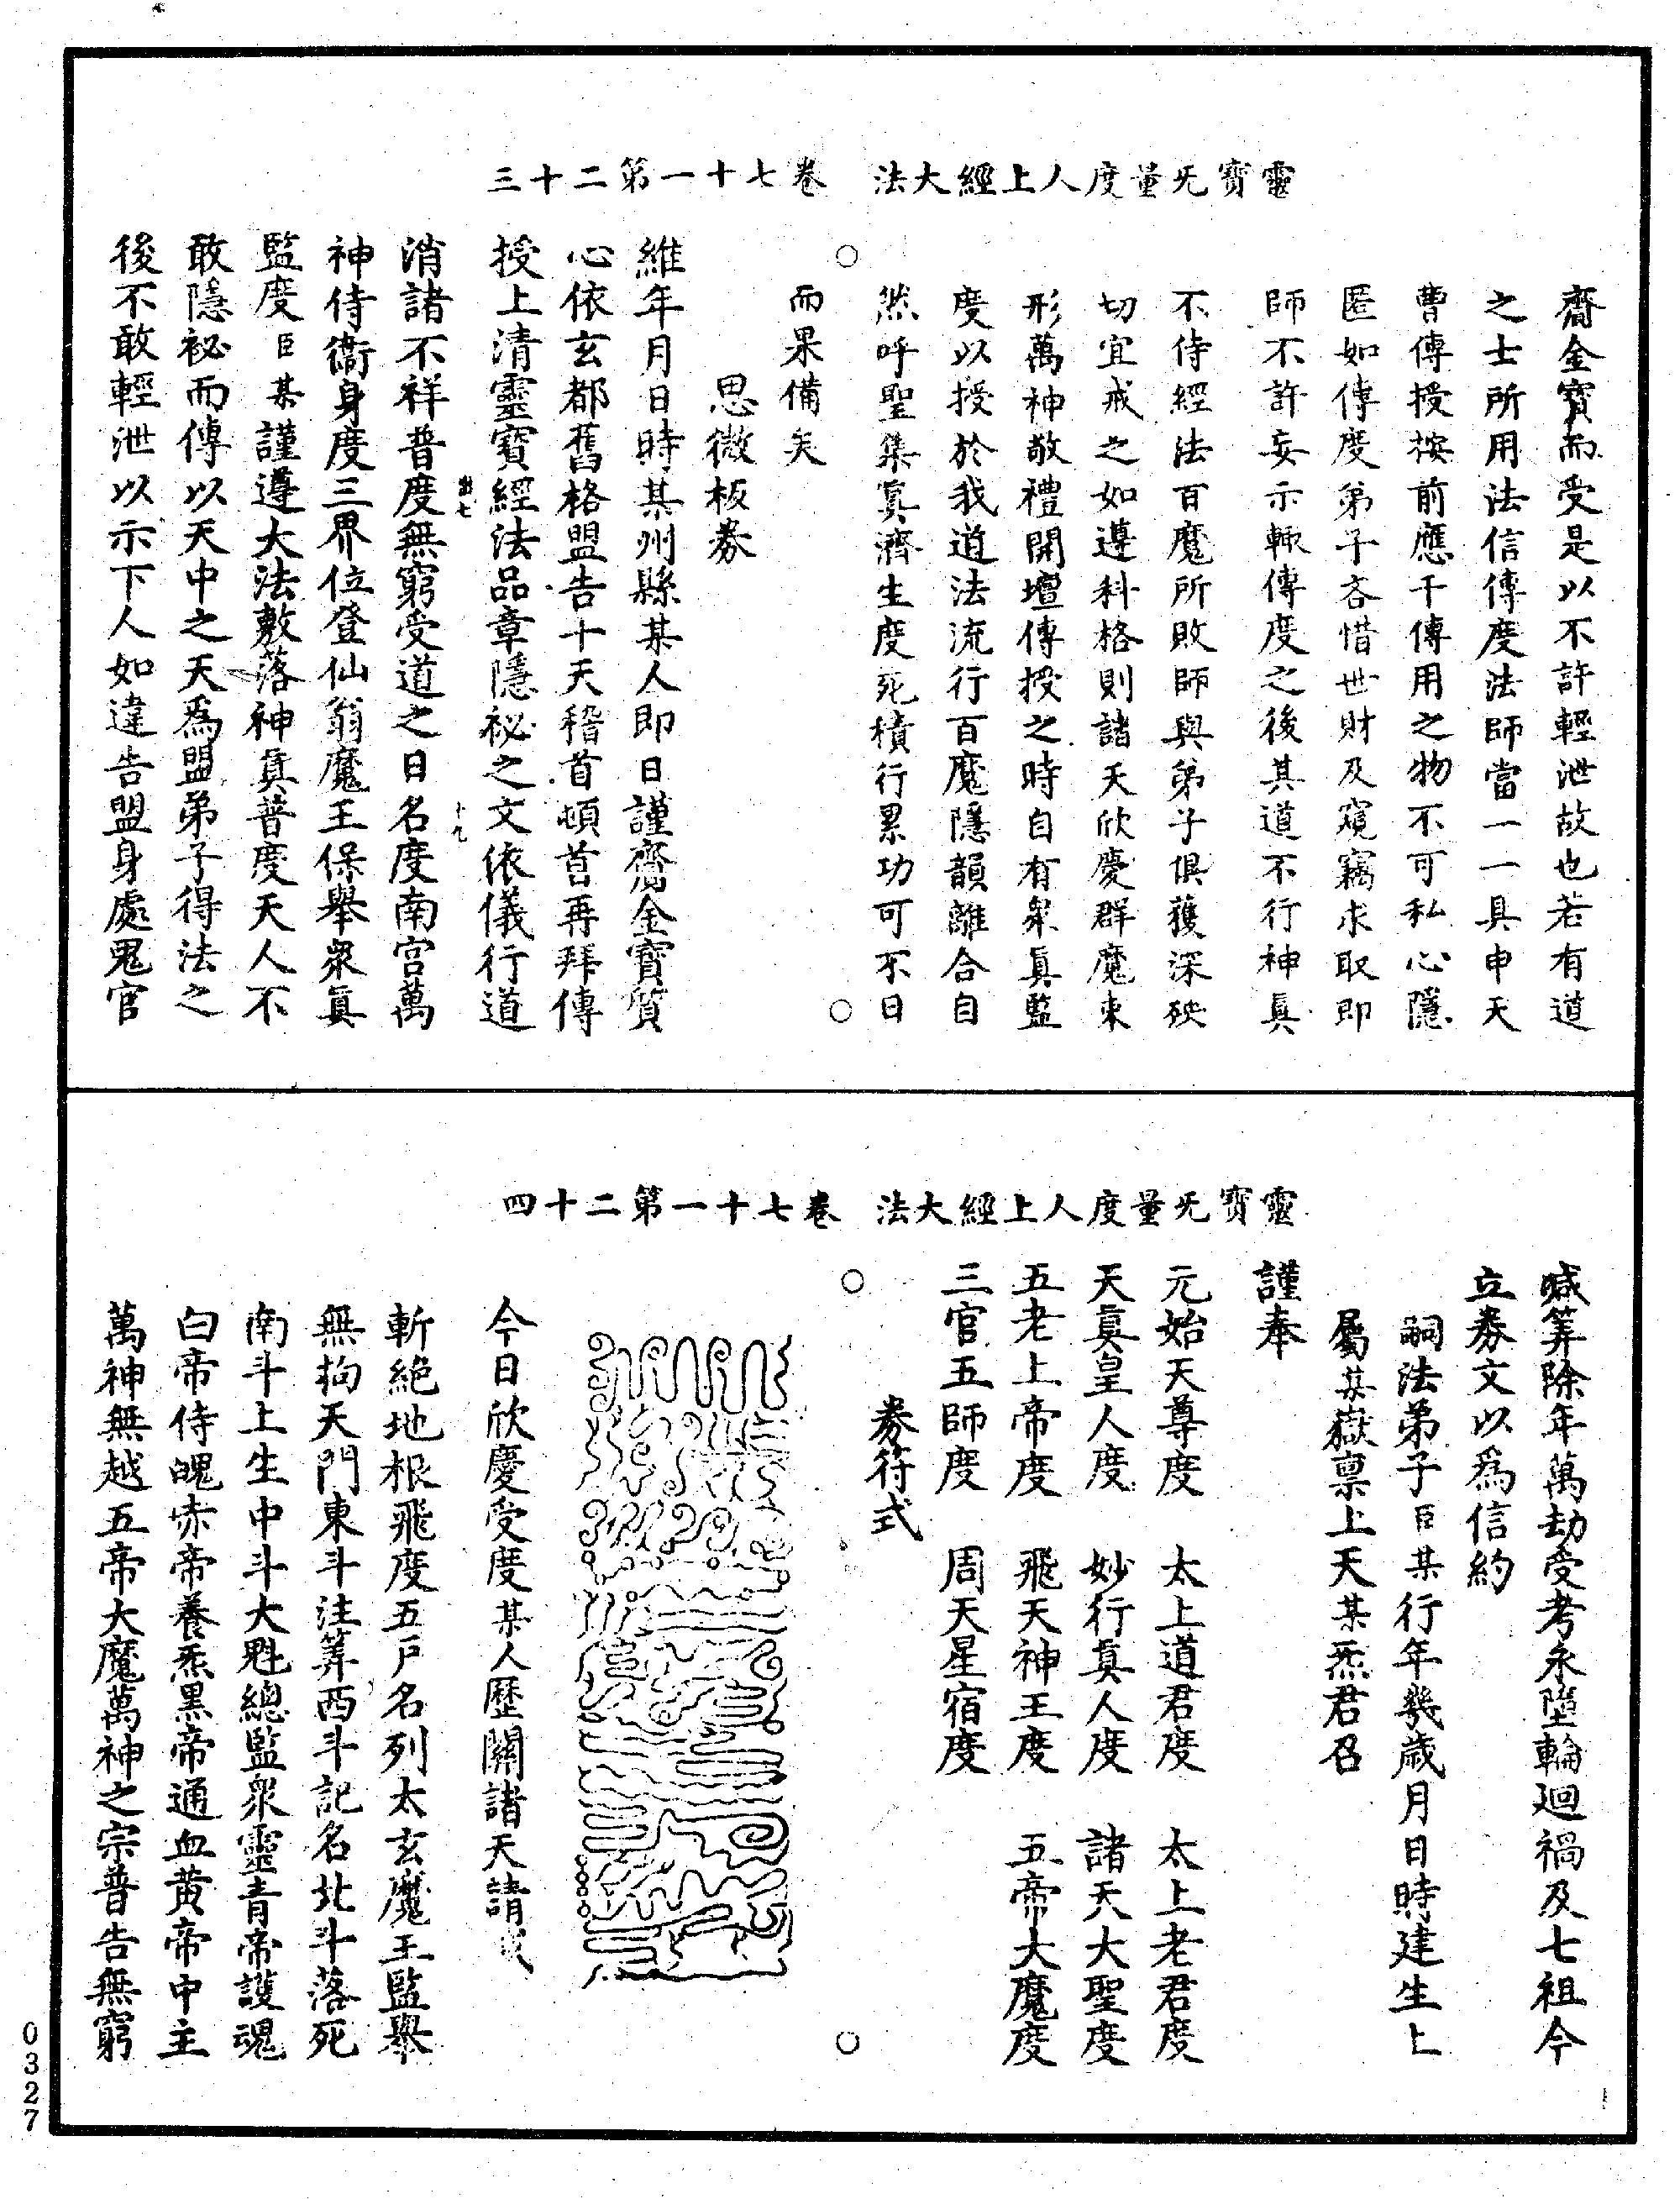 靈寶无量度人上經大法　卷七十一第二十三
齎金寶而受是以不許輕泄故也若有道
之士所用法信傳度法師當一一具申天
曹傳授按前應干傳用之物不可私心隱
匿如傳度弟子吝惜世財及窺竊求取即
師不許妄示輒傳度之後其道不行神真
不侍經法百魔所敗師與弟子俱獲深殃
切宜戒之如遵科格則諸天欣慶群魔束
形萬神敬禮開壇傳授之時自有眾真監
度以授於我道法流行百魔隱韻離合自
然呼聖集真濟生度死積行累功可不日
而果備矣
思微板券
維年月日時某州縣某人即日謹齎金寶質
心依玄都舊格盟告十天稽首頓首再拜傳
授上清靈寶經法品章隱祕之文依儀行道
消諸不祥普度無窮受道之日名度南宮萬
神侍衛身度三界位登仙翁魔王保舉眾真
監度臣某謹遵大法敷落神真普度天人不
敢隱祕而傳以天中之天為盟弟子得法之
後不敢輕泄以示下人如違告盟身處鬼官
靈寶无量度人上經大法　卷七十一第二十四
喊筭除年萬劫受考永墮輪迴禍及七祖今
立券文以為信約
嗣法弟子臣某行年幾歲月日時建生上
屬某嶽稟上天某炁君召
謹奉
元始天尊度　太上道君度　太上老君度
天真皇人度　妙行真人度　諸天大聖度
五老上帝度　飛天神王度　五帝大魔度
三官五師度　周天星宿度
券符式
今日欣慶受度某人歷關諸天請
斬絕地根飛度五戶名列太玄魔王監舉
無拘天門東斗注筭西斗記名北斗落死
南斗上生中斗大魁總監眾靈青帝護魂
白帝侍魄赤帝養炁黑帝通血黃帝中主
萬神無越五帝大魔萬神之宗普告無窮
0327